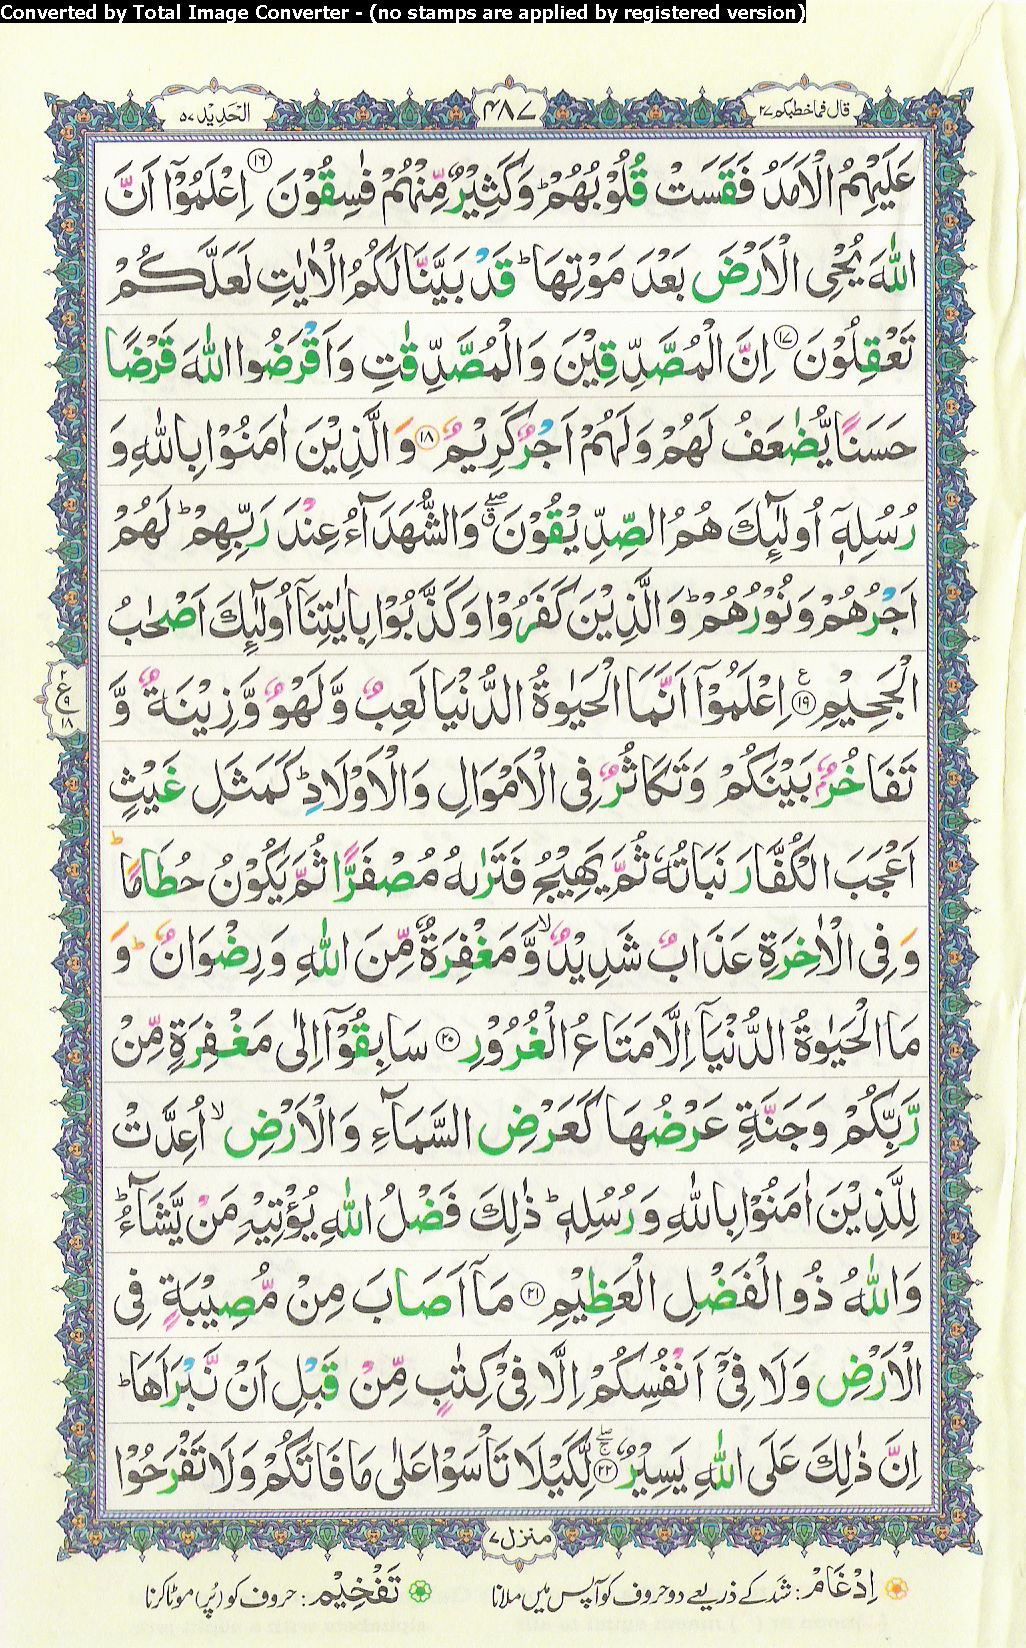 Converted by Total Image Converter - (no stamps are applied by registered version)
قال فما خطبكم ٢٧
٤٨٧
الْحَدِيْد ٥٧
عَلَيْهِمُ الْاَمَدُ فَقَسَتْ قُلُوْبُهُمْ ؕ وَكَثِيْرٌ مِّنْهُمْ فٰسِقُوْنَ ⑯ اِعْلَمُوْۤا اَنَّ
اللّٰهَ يُحْىِ الْاَرْضَ بَعْدَ مَوْتِهَا ؕ قَدْ بَيَّنَّا لَكُمُ الْاٰيٰتِ لَعَلَّكُمْ
تَعْقِلُوْنَ ⑰ اِنَّ الْمُصَّدِّقِيْنَ وَالْمُصَّدِّقٰتِ وَاَقْرَضُوا اللّٰهَ قَرْضًا
حَسَنًا يُّضٰعَفُ لَهُمْ وَلَهُمْ اَجْرٌ كَرِيْمٌ ⑱ وَالَّذِيْنَ اٰمَنُوْا بِاللّٰهِ وَ
رُسُلِهٖۤ اُولٰٓئِكَ هُمُ الصِّدِّيْقُوْنَ ۖۗ وَالشُّهَدَآءُ عِنْدَ رَبِّهِمْ ؕ لَهُمْ
اَجْرُهُمْ وَنُوْرُهُمْ ؕ وَالَّذِيْنَ كَفَرُوْا وَكَذَّبُوْا بِاٰيٰتِنَاۤ اُولٰٓئِكَ اَصْحٰبُ
الْجَحِيْمِ ⑲ اِعْلَمُوْۤا اَنَّمَا الْحَيٰوةُ الدُّنْيَا لَعِبٌ وَّلَهْوٌ وَّزِيْنَةٌ وَّ
٢
ع
٩
١٨
تَفَاخُرٌۢ بَيْنَكُمْ وَتَكَاثُرٌ فِى الْاَمْوَالِ وَالْاَوْلَادِ ؕ كَمَثَلِ غَيْثٍ
اَعْجَبَ الْكُفَّارَ نَبَاتُهٗ ثُمَّ يَهِيْجُ فَتَرٰىهُ مُصْفَرًّا ثُمَّ يَكُوْنُ حُطَامًا ؕ
وَفِى الْاٰخِرَةِ عَذَابٌ شَدِيْدٌ ۙ وَّمَغْفِرَةٌ مِّنَ اللّٰهِ وَرِضْوَانٌ ؕ وَ
مَا الْحَيٰوةُ الدُّنْيَاۤ اِلَّا مَتَاعُ الْغُرُوْرِ ⑳ سَابِقُوْۤا اِلٰى مَغْفِرَةٍ مِّنْ
رَّبِّكُمْ وَجَنَّةٍ عَرْضُهَا كَعَرْضِ السَّمَآءِ وَالْاَرْضِ ۙ اُعِدَّتْ
لِلَّذِيْنَ اٰمَنُوْا بِاللّٰهِ وَرُسُلِهٖ ؕ ذٰلِكَ فَضْلُ اللّٰهِ يُؤْتِيْهِ مَنْ يَّشَآءُ ؕ
وَاللّٰهُ ذُو الْفَضْلِ الْعَظِيْمِ ㉑ مَاۤ اَصَابَ مِنْ مُّصِيْبَةٍ فِى
الْاَرْضِ وَلَا فِىْۤ اَنْفُسِكُمْ اِلَّا فِىْ كِتٰبٍ مِّنْ قَبْلِ اَنْ نَّبْرَاَهَا ؕ
اِنَّ ذٰلِكَ عَلَى اللّٰهِ يَسِيْرٌ ㉒ لِّكَيْلَا تَاْسَوْا عَلٰى مَا فَاتَكُمْ وَلَا تَفْرَحُوْا
منزل ٧
اِدْغَامْ: شد کے ذریعے دو حروف کو آپس میں ملانا
تَفْخِیْم: حروف کو (پُر) موٹا کرنا